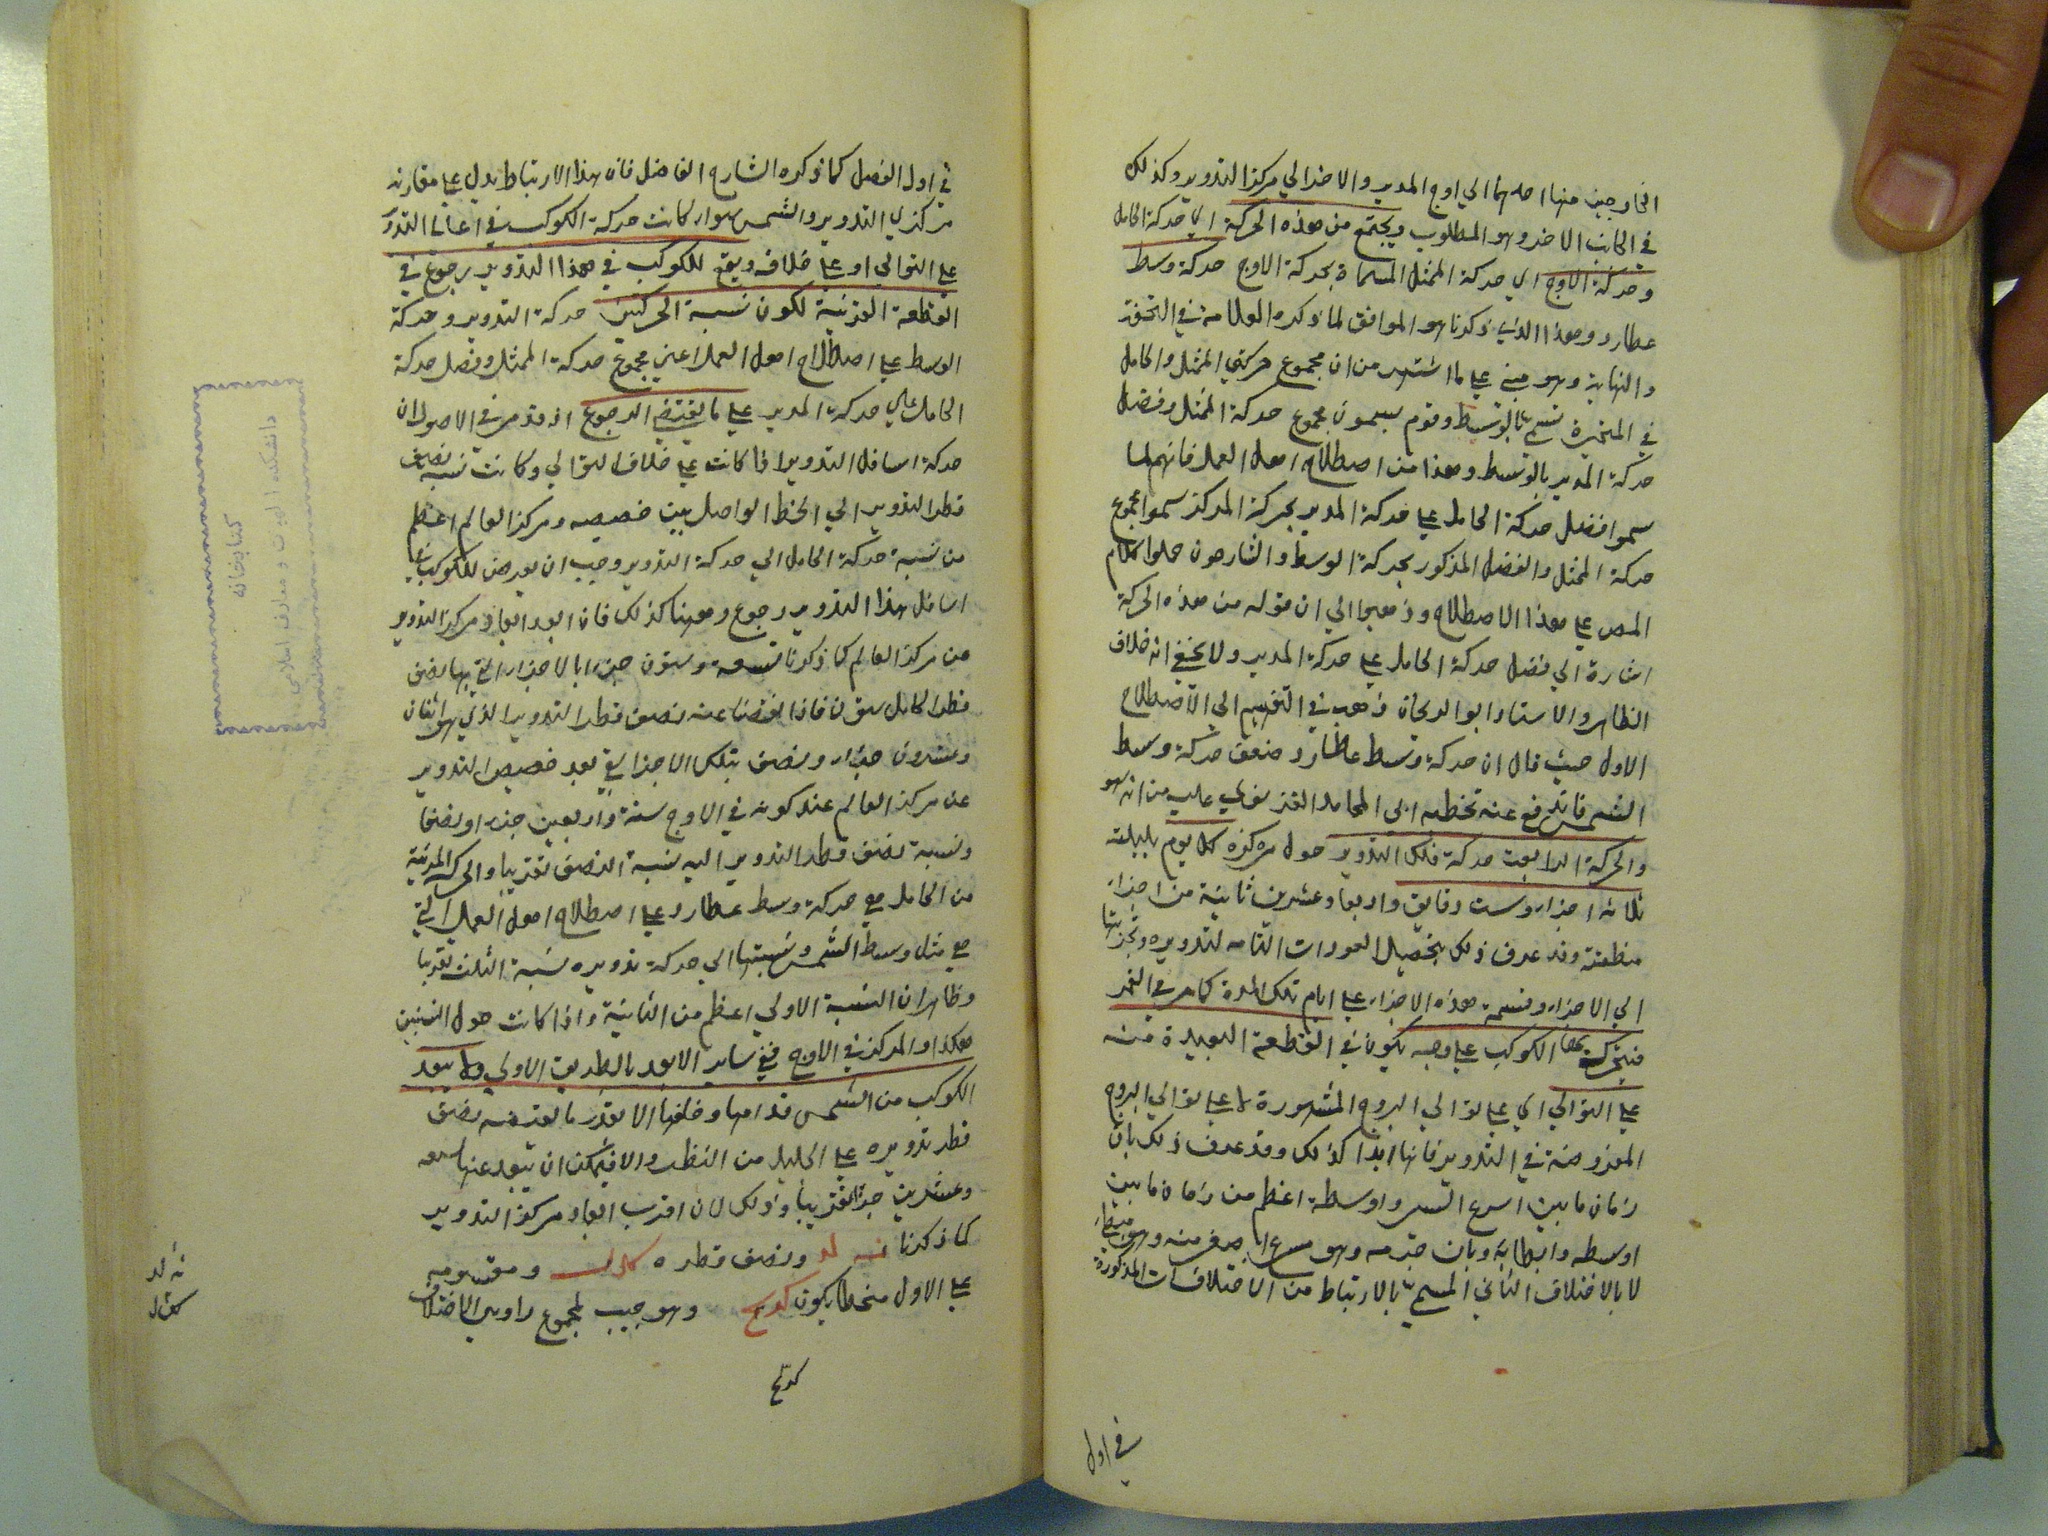 الخارجين منها احدهما الي اوج المدير والاخر الي مركز التدوير وكذلك
في الجانب الاخر وهو المطلوب ويجتمع من هذه الحركة اي حركة الحامل
وحركة الاوج اي حركة الممثل المسماة بحركة الاوج حركة وسط
عطارد وهذا الذي ذكرنا هو الموافق لما ذكره العلامة في التحفة
والنهاية وهو مبني علي ما اشتهر من ان مجموع حركتي الممثل والحامل
في المتحيرة تسمي بالوسط وقوم يسمون مجموع حركة الممثل وفضل
حركة المدير بالوسط وهذا من اصطلاح اهل العمل فانهم لما
سموا فضل حركة الحامل علي حركة المدير بحركة المركز سموا مجموع
حركة الممثل والفضل المذكور بحركة الوسط والشارحون حملوا كلام
المص علي هذا الاصطلاح وذهبوا الي ان قوله من هذه الحركة
اشارة الي فضل حركة الحامل علي حركة المدير ولا يخفي انه خلاف
الظاهر والاستاد ابو الريحان ذهب في التفهيم الي الاصطلاح
الاول حيث قال ان حركة وسط عطارد ضعف حركة وسط
الشمس فاندفع عنه تخطيه ابي المحامد الغزنوي عليه من انه سهو
والحركة الرابعة حركة فلك التدوير حول مركزه كل يوم بليلته
ثلاثة اجزاء وست دقايق واربعا وعشرين ثانية من اجزاء
منطقته وقد عرف ذلك بتحصيل العودات التامة لتدويره وتجزيتها
الي الاجزاء وقسمة هذه الاجزاء علي ايام تلك المدة كما مر في القمر
فيتحرك بها الكوكب علي وجه يكون في القطعة البعيدة منه
علي التوالي اي علي توالي البروج المشهورة لا علي توالي البروج
المفروضة في التدوير فانها ابدا كذلك وقد عرف ذلك بان
زمان ما بين اسرع السير واوسطه اعظم من زمان ما بين
اوسطه وابطائه وبان جرمه وهو مسرع اصغر منه وهو مبطئ
لا بالاختلاف الثاني المسمي بالارتباط من الاختلافات المذكورة
في اول
في اول الفصل كما ذكره الشارح الفاضل فان هذا الارتباط يدل علي مقارنة
مركزي التدوير والشمس سواء كانت حركة الكوكب في اعالي التدوير
علي التوالي او علي خلافه ويقع للكوكب في هذا التدوير رجوع في
القطعة القريبة لكون نسبة الحركتين حركة التدوير وحركة
الوسط علي اصطلاح اهل العمل اعني مجموع حركة الممثل وفضل حركة
الحامل علي حركة المدير علي ما يقتضي الرجوع اذ قد مر في الاصول ان
حركة اسافل التدوير اذا كانت علي خلاف التوالي وكانت نسبة نصف
قطر التدوير الي الخط الواصل بين حضيضه ومركز العالم اعظم
من نسبة حركة الحامل الي حركة التدوير وجب ان يعرض للكوكب في
اسافل هذا التدوير رجوع وههنا كذلك فان ابعد ابعاد مركز التدوير
من مركز العالم كما ذكرنا تسعة وستون جزءا بالاجزاء التي بها نصف
قطر الحامل ستون فاذا نقصنا عنه نصف قطر التدوير الذي هو اثنان
وعشرون جزءا ونصف بتلك الاجزا بقي بعد حضيض التدوير
عن مركز العالم عند كونه في الاوج ستة واربعين جزءا ونصفا
ونسبة نصف قطر التدوير اليه نسبة النصف تقريبا والحركة المرئية
من الحامل مع حركة وسط عطارد علي اصطلاح اهل العمل التي
هي مثل وسط الشمس ونسبتها الي حركة تدويره نسبة الثلث تقريبا
وظاهر ان النسبة الاولي اعظم من الثانية واذا كانت حول النسبتين
هكذا والمركز في الاوج ففي ساير الابعد بالطريق الاولي ولا يبعد
الكوكب من الشمس قدامها وخلفها الا بقدر ما يقتضيه نصف
قطر تدويره علي الجليل من النظر والا فيمكن ان يبعد عنها سبعة
وعشرين جزءا تقريبا وذلك لان اقرب ابعاد مركز التدوير
كما ذكرنا نه لد ونصف قطره ومقسومه
علي الاول منحطا يكون وهو جيب لمجموع زاويتي الاختلاف
نه لد
كتابخانه
دانشكده الهيات و معارف اسلامى